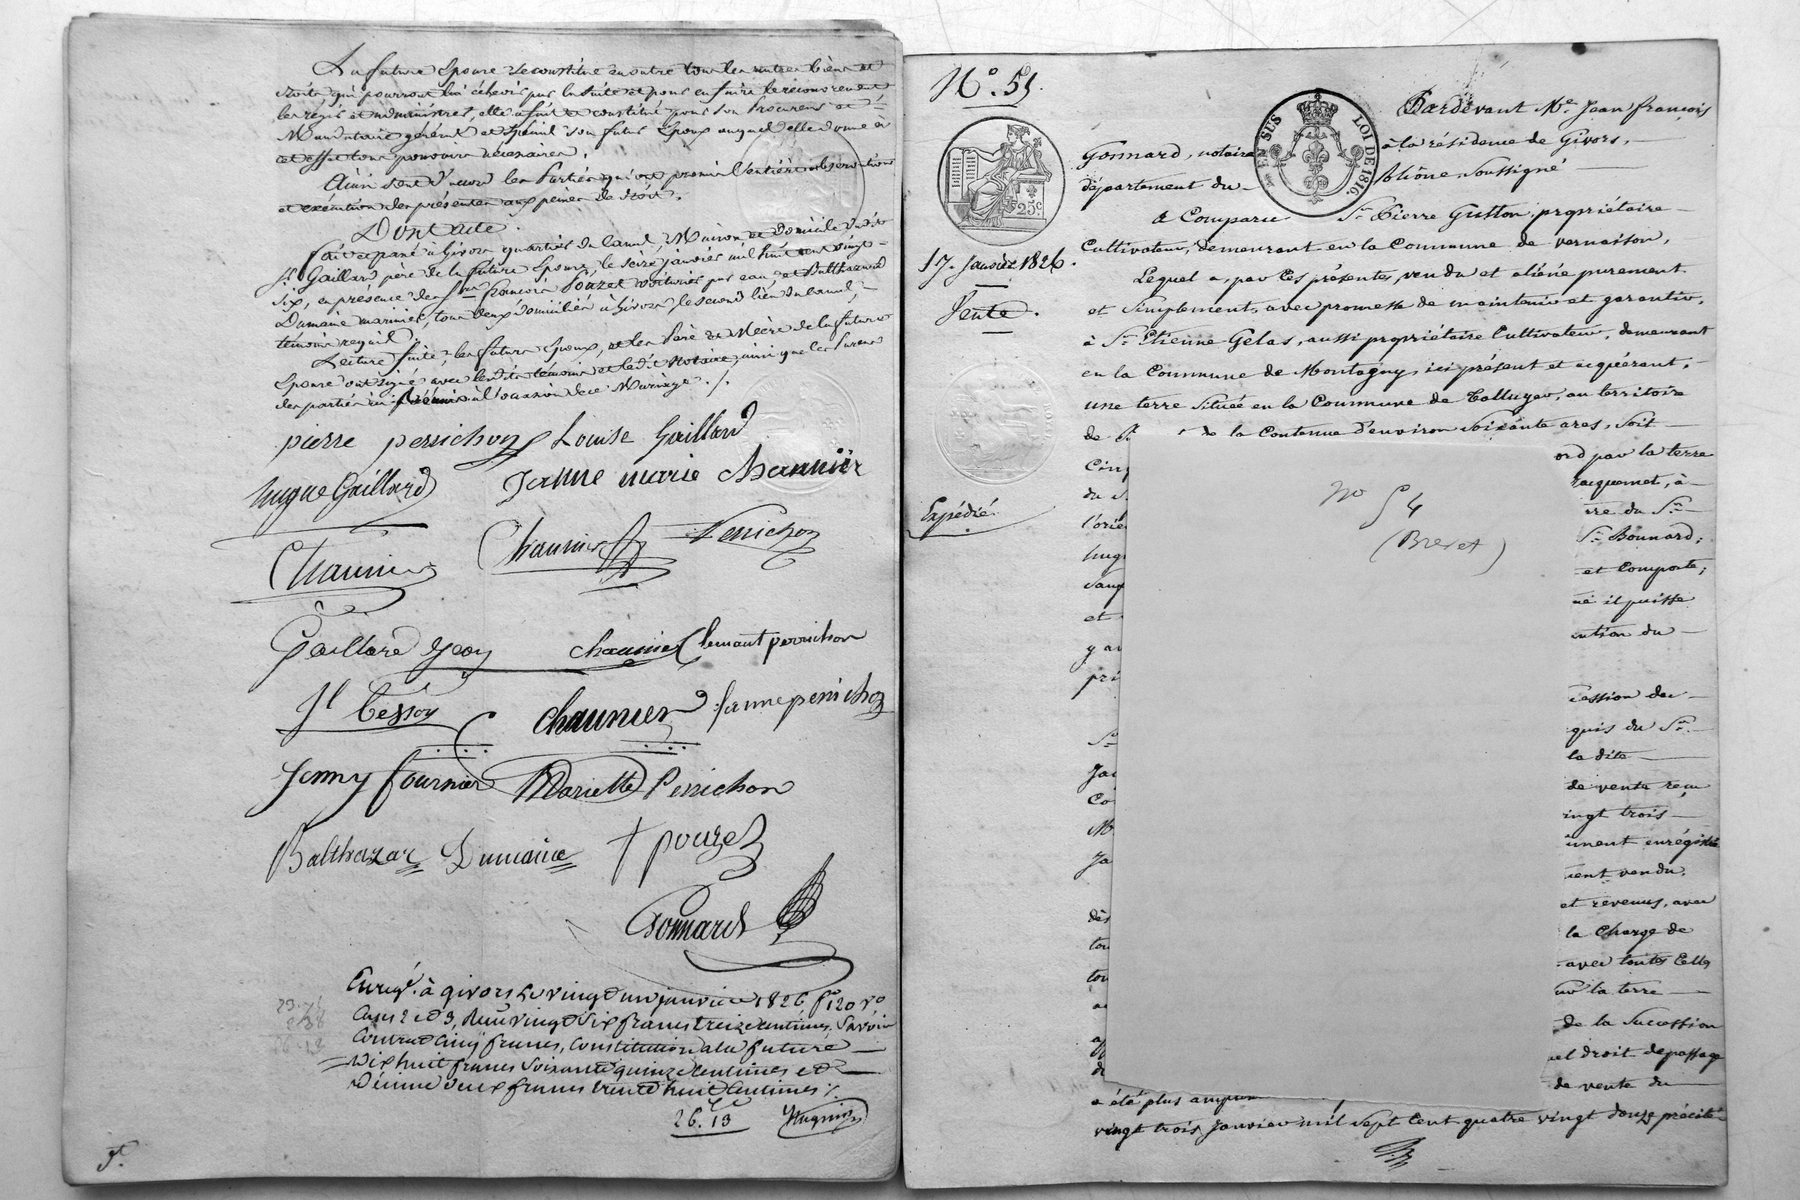 La future Epouse se constitue en outre tous les autres biens et
droits qui pourront lui échéoir par la suite et pour en faire le recouvrement
les régir et administrer, elle a fait et constitué pour son Procureur et
Mandataire général et spécial son futur Epoux auquel elle donne à
cet effet tous pouvoirs nécessaires.
Ainsi sont d'accord les Parties qui ont promis l'entière observation
et exécution des présentes aux peines de droit.
Dont acte.
Fait et passé à Givors quartier du Canal, Maison et domicile du dit
Sr. Gaillard père de la future Epouse, le seize janvier mil huit cent vingt
six, en présence de Sr. françois Pouzet voiturier par eau et Balthazard
Dumaine marinier, tous deux domiciliés à Givors, le second lieu du Canal,
témoins requis.
Lecture faite, les futurs Epoux, et les Père et Mère de la future
Epouse ont signé avec lesdits témoins et ledit Notaire, ainsi que les Parens
des parties ici réunis à l'occasion de ce Mariage ./.
pierre perrichon Louise Gaillard
hugue Gaillard Jeanne marie Chaunier
Chaunier Chaunier Perrichon
Gaillard Chaunier Clemant perrichon
Jl Tessoy Chaunier perrichon
Jenny fournier Mariette Perrichon
Balthazar Dumaine + pouzet
Gonnard
Enreg. à givors le vingt un janvier 1826 fo 120 vo
Cases 2 et 3, Reçu vingt six francs treize centimes, Savoir
Contrat cinq francs, Constitution à la future
Dix huit francs soixante quinze centimes et
Décime deux francs trente huit centimes ./.
26.13
No. 51.
25c
17. Janvier 1826.
Vente.
Expédié.
EN SUS
LOI DE 1816.
Pardevant Me. Jean françois
Gonnard, notaire à la résidence de Givors,
département du Rhône Soussigné
a Comparu Sr. Pierre Gutton, propriétaire
Cultivateur, demeurant en la Commune de vernaison,
Lequel a, par ces présentes, vendu et aliéné purement
et Simplement, avec promesse de maintenir et garantir,
à Sr. Etienne Gelas, aussi propriétaire Cultivateur, demeurant
en la Commune de Montagny, ici présent et acquérant,
une terre située en la Commune de Talluyer, au territoire
de la Contenue d'environ Soixante ares, Soit
par la terre
du Jacquemet, à
l'orie re du Sr.
Sr. Bonnard;
et Comporte,
et il puisse
du
cession des
Sr. quis du Sr.
la dite
de vente reçu
ingt trois
ument enrégistré
ient vendu,
dès et revenus, avec
la Charge de
avec toutes Celles
la terre
de la Succession
droit de passage
de vente du
a été plus
vingt trois Janvier mil Sept Cent quatre vingt douze précité
No 54
(Brevet)